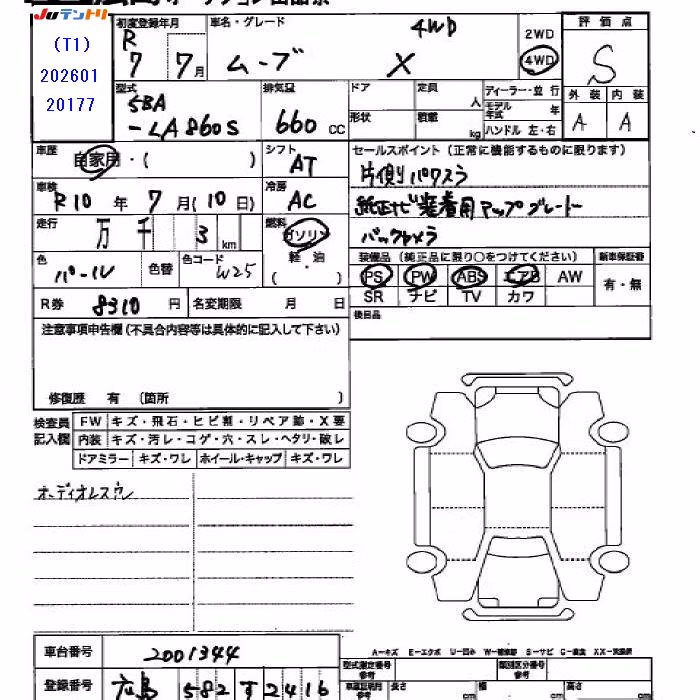 Juテントリ
(T1)
202601
20177
初度登録年月
R
7 7月
車名・グレード
4WD
ムーブ X
2WD
4WD
評価点
S
外装 内装
A A
型式
5BA
-LA860S
排気量
660 cc
ドア 定員 人
形状 積載 kg
ディーラー・並行
モデル年式 年
ハンドル 左・右
車歴
自家用・( )
シフト
AT
セールスポイント(正常に機能するものに限ります)
片側パワスラ
純正ナビ装着用アップグレード
バックカメラ
車検
R10年 7月(10日)
冷房
AC
走行
万 千 3 km
燃料
ガソリン
軽・油
( )
色
パール
色替
色コード
W25
装備品(純正品に限り○をつけてください)
PS PW ABS エアB AW
SR ナビ TV カワ
新車保証書
有・無
R券 8310円
名変期限 月 日
後日品
注意事項申告欄(不具合内容等は具体的に記入して下さい)
修復歴 有 (箇所 )
検査員
記入欄
FW キズ・飛石・ヒビ割・リペア跡・X要
内装 キズ・汚レ・コゲ・穴・スレ・ヘタリ・破レ
ドアミラー キズ・ワレ ホイール・キャップ キズ・ワレ
オーディオレスウレ
車台番号 2001344
登録番号 広島 582 す 2416
A−キズ E−エクボ U−凹み W−補修跡 S−サビ C−腐食 XX−交換済
型式指定番号
類別区分番号
長さ cm
幅 cm
高さ cm